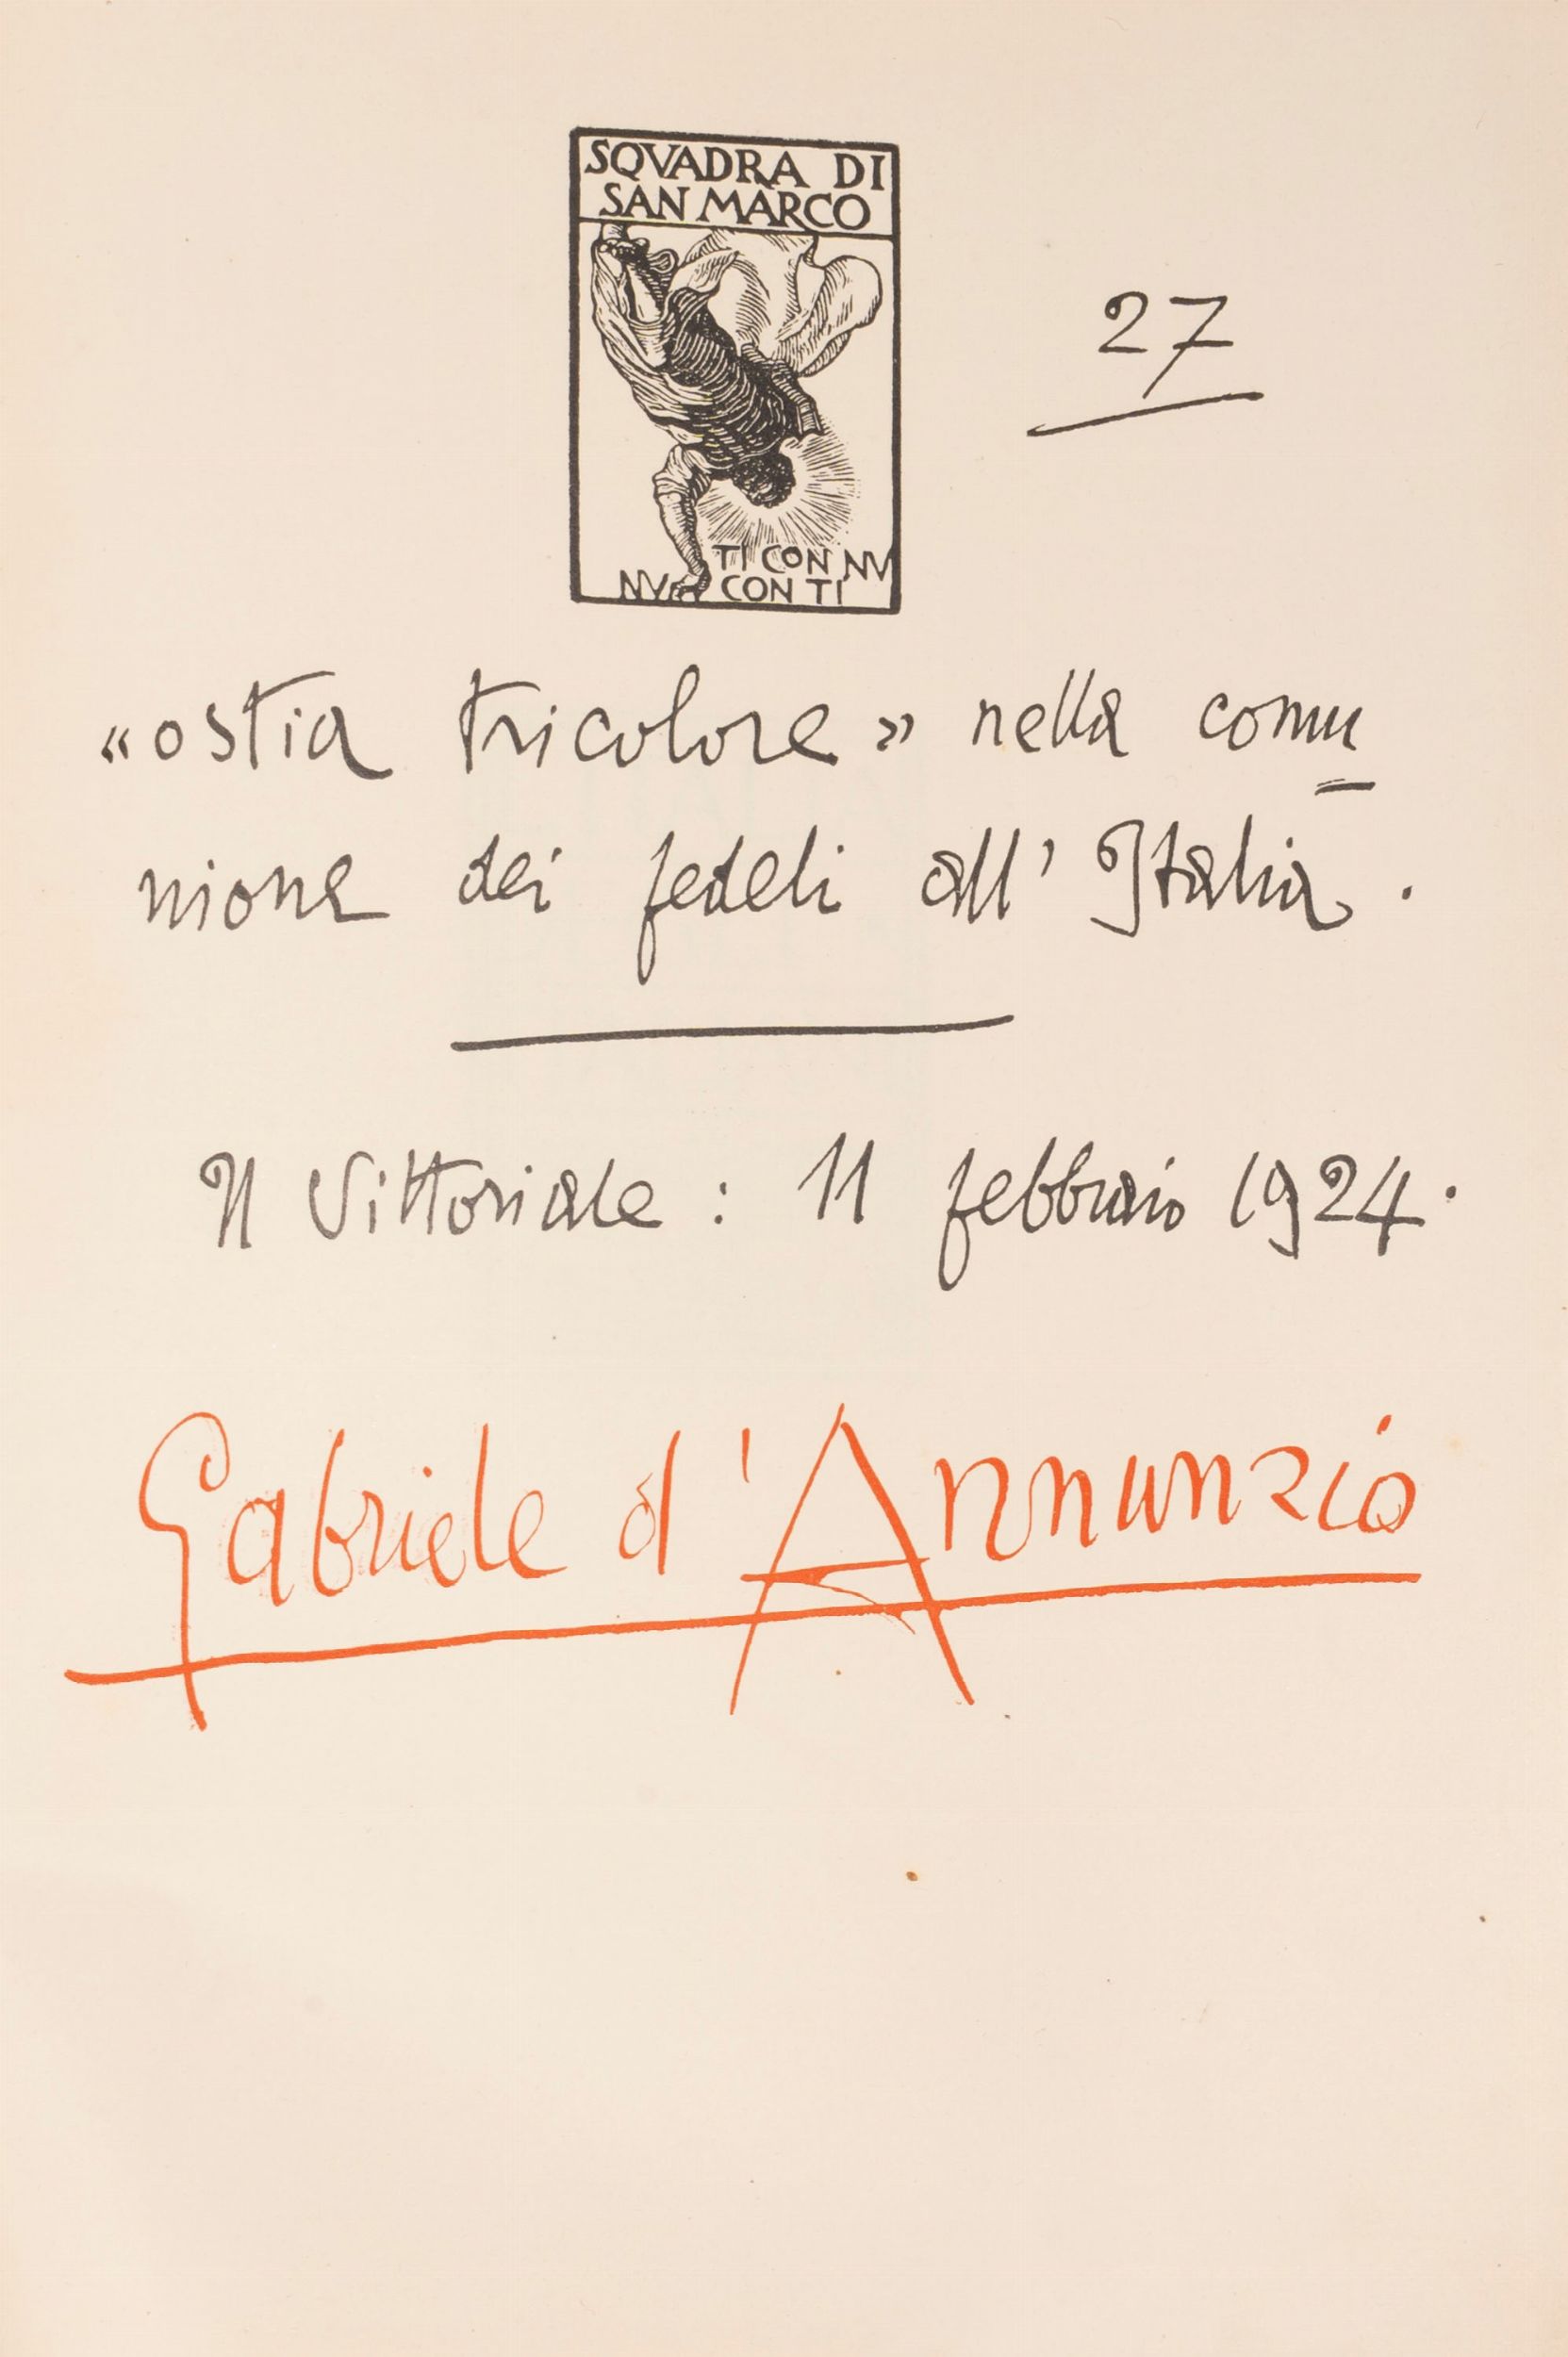 SQVADRA DI
SAN MARCO
TI CON NV
NV CON TI
27
«ostia tricolore» nella comu
nione dei fedeli all' Italia.
Il Vittoriale: 11 febbraio 1924.
Gabriele d'Annunzio